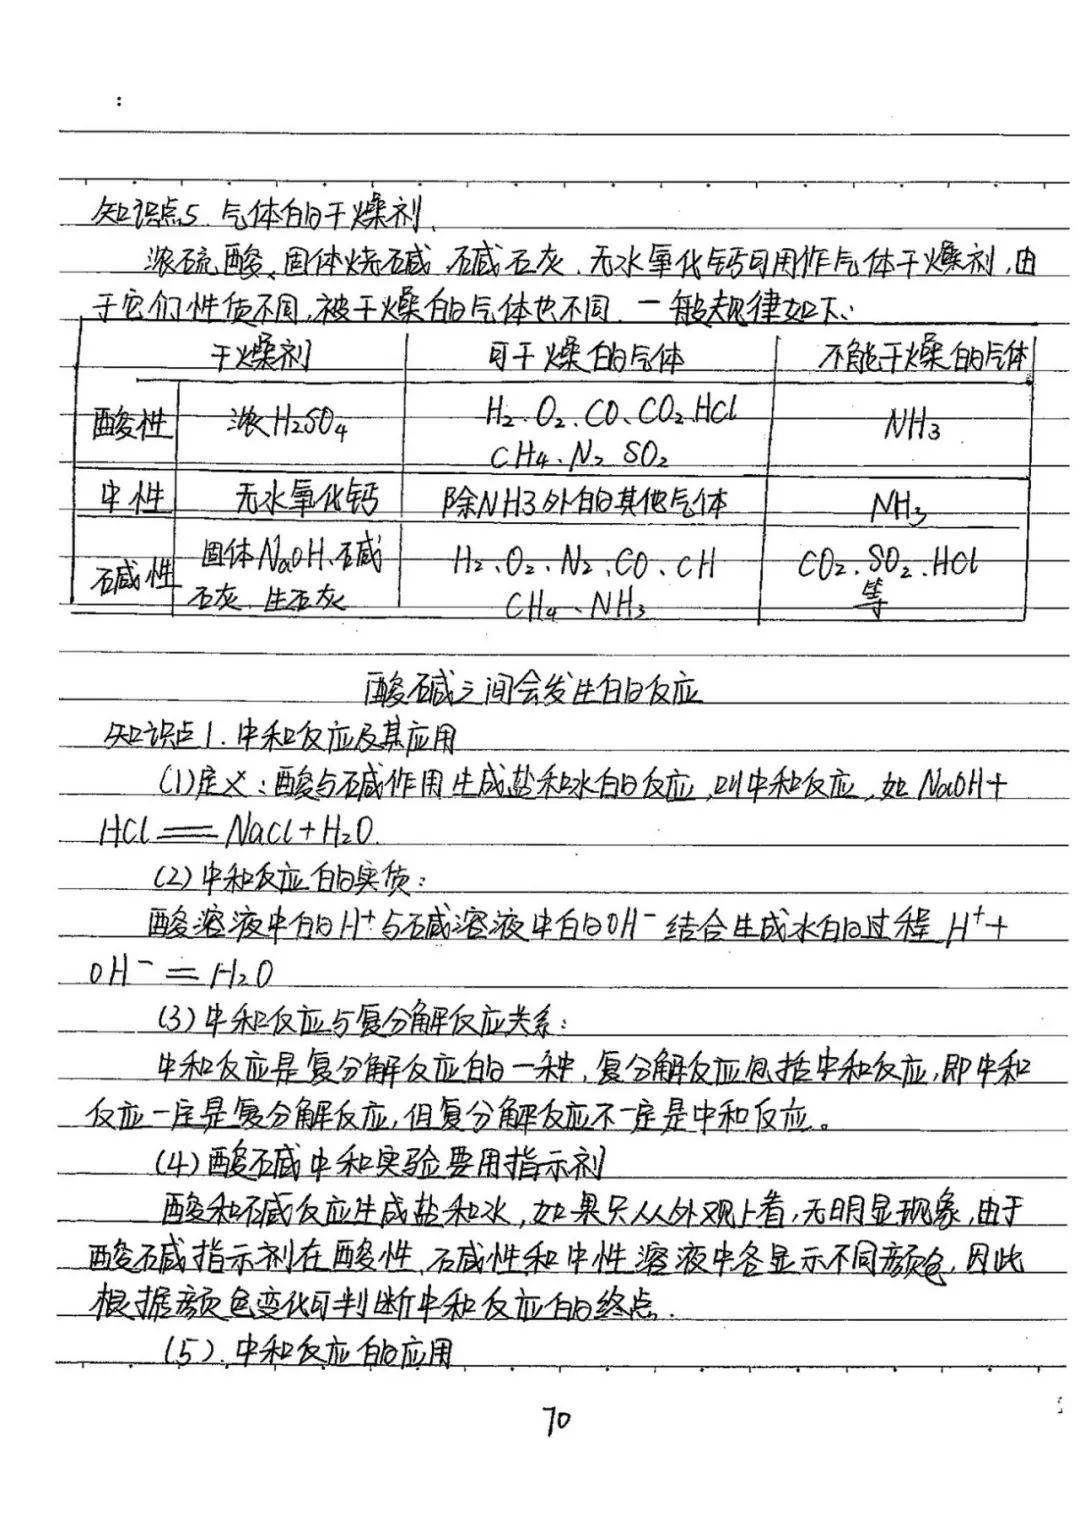 :
知识点5.气体的干燥剂.
浓硫酸、固体烧碱.碱石灰.无水氧化钙可用作气体干燥剂,由
于它们性质不同,被干燥的气体也不同.一般规律如下:
干燥剂 可干燥的气体 不能干燥的气体
酸性 浓H₂SO₄ H₂.O₂.CO、CO₂.HCl NH₃
CH₄、N₂ SO₂
中性 无水氧化钙 除NH3外的其他气体 NH₃
碱性 固体NaOH、碱 H₂、O₂、N₂、CO、CH CO₂.SO₂.HCl
石灰.生石灰 CH₄、NH₃ 等
酸碱之间会发生的反应
知识点1.中和反应及其应用
(1)定义:酸与碱作用生成盐和水的反应,叫中和反应,如NaOH+
HCl══NaCl+H₂O.
(2)中和反应的实质:
酸溶液中的H⁺与碱溶液中的OH⁻结合生成水的过程 H⁺+
OH⁻=H₂O
(3)中和反应与复分解反应关系:
中和反应是复分解反应的一种,复分解反应包括中和反应,即中和
反应一定是复分解反应,但复分解反应不一定是中和反应。
(4)酸碱中和实验要用指示剂
酸和碱反应生成盐和水,如果只从外观上看,无明显现象,由于
酸碱指示剂在酸性.碱性和中性溶液中各显示不同颜色,因此
根据颜色变化可判断中和反应的终点.
(5).中和反应的应用
70